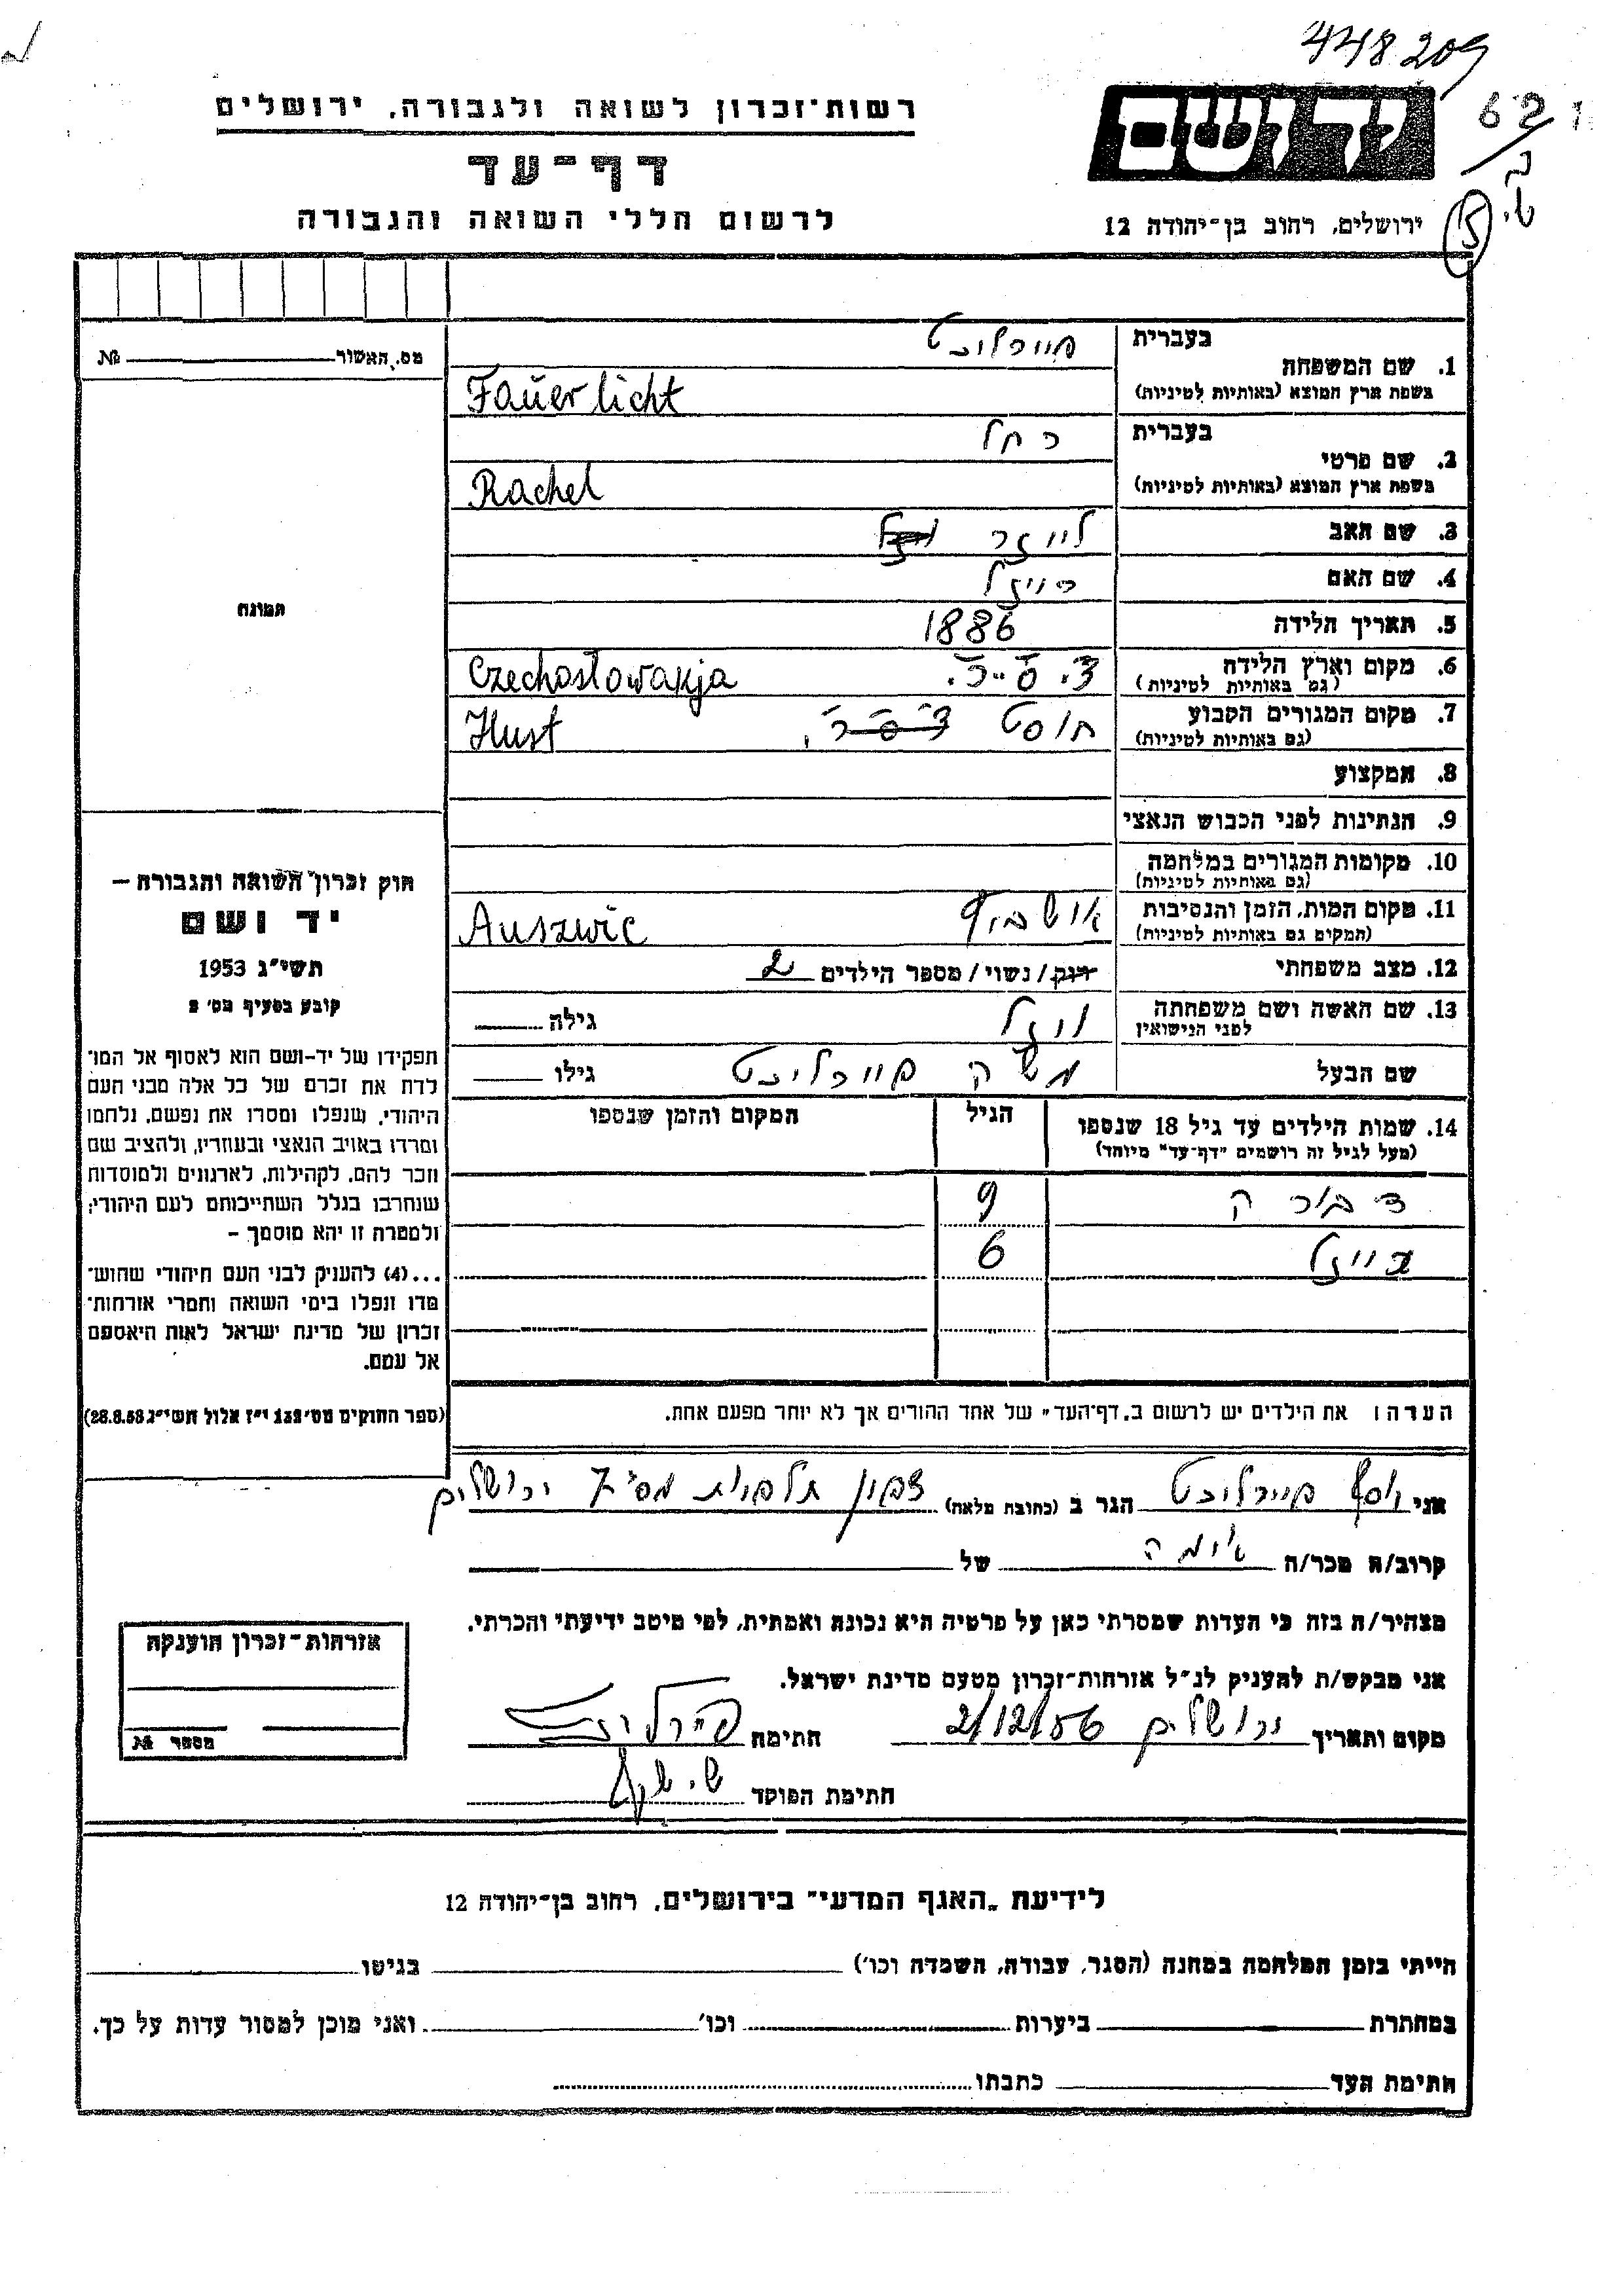 448209
62
רשות-זכרון לשואה ולגבורה, ירושלים
דף-עד
לרשום חללי השואה והגבורה
ידושם
ירושלים, רחוב בן-יהודה 12
15
בעברית
פיירליכט
1. שם המשפחה
בשפת ארץ המוצא (באותיות לטיניות)
Fauerlicht
בעברית
רחל
2. שם פרטי
בשפת ארץ המוצא (באותיות לטיניות)
Rachel
3. שם האב
לייזר
4. שם האם
רייזל
5. תאריך הלידה
1886
6. מקום וארץ הלידה
(גם באותיות לטיניות)
צ'.ס.ר.
Czechosłowakja
7. מקום המגורים הקבוע
(גם באותיות לטיניות)
חוסט
Hust
8. המקצוע
9. הנתינות לפני הכבוש הנאצי
10. מקומות המגורים במלחמה
(גם באותיות לטיניות)
11. מקום המות, הזמן והנסיבות
(המקום גם באותיות לטיניות)
אושביץ
Auszwic
12. מצב משפחתי
רוק/נשוי/מספר הילדים 2
13. שם האשה ושם משפחתה
לפני הנישואין
גילה
שם הבעל
משה פיירליכט
גילו
14. שמות הילדים עד גיל 18 שנספו
(מעל לגיל זה רושמים "דף-עד" מיוחד)
הגיל
המקום והזמן שנספו
דבורה 9
6
הערה: את הילדים יש לרשום ב"דף-העד" של אחד ההורים אך לא יותר מפעם אחת.
מס. האשור №
תמונה
חוק זכרון השואה והגבורה –
יד ושם
תשי"ג 1953
קובע בסעיף מס' 2
תפקידו של יד-ושם הוא לאסוף אל המו-
לדת את זכרם של כל אלה מבני העם
היהודי, שנפלו ומסרו את נפשם, נלחמו
ומרדו באויב הנאצי ובעוזריו, ולהציב שם
וזכר להם, לקהילות, לארגונים ולמוסדות
שנחרבו בגלל השתייכותם לעם היהודי;
ולמטרה זו יהא מוסמך –
...(4) להעניק לבני העם היהודי שהוש-
מדו ונפלו בימי השואה והמרי אזרחות-
זכרון של מדינת ישראל לאות היאספם
אל עמם.
(ספר החוקים מס' 132 י"ז אלול תשי"ג 28.8.53)
אני יוסף פיירליכט הגר ב (כתובת מלאה) צפון תלפיות ירושלים
קרוב/ה מכר/ה אימה של
מצהיר/ה בזה כי העדות שמסרתי כאן על פרטיה היא נכונה ואמתית, לפי מיטב ידיעתי והכרתי.
אני מבקש/ת להעניק לנ"ל אזרחות-זכרון מטעם מדינת ישראל.
מקום ותאריך ירושלים 2/12/56 חתימה פיירליכט
חתימת הפוקד
אזרחות-זכרון הוענקה
מספר №
לידיעת "האגף המדעי" בירושלים, רחוב בן-יהודה 12
הייתי בזמן המלחמה במחנה (הסגר, עבודה, השמדה וכו') בגיטו
במחתרת ביערות וכו' ואני מוכן למסור עדות על כך.
חתימת העד כתבתו